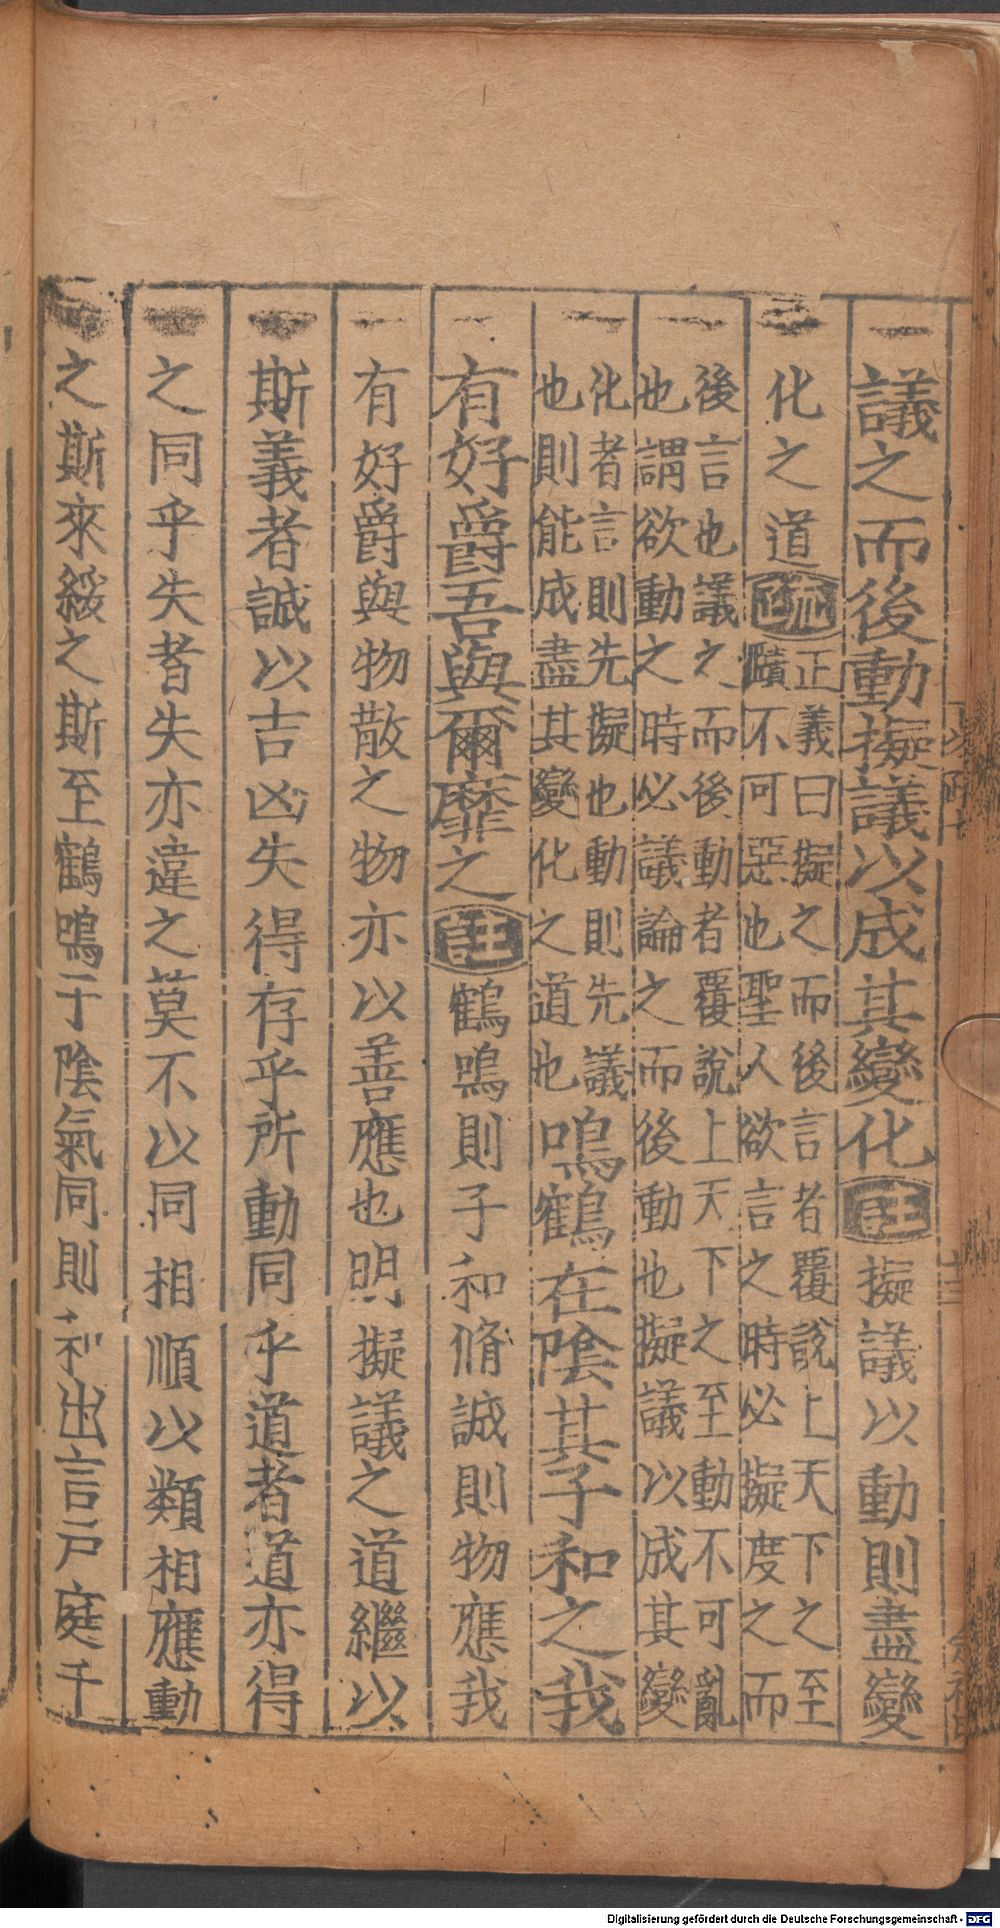 議之而後動擬議以成其變化註擬議以動則盡變
化之道疏正義曰擬之而後言者覆說上天下之至
賾不可惡也聖人欲言之時必擬度之而
後言也議之而後動者覆說上天下之至動不可亂
也謂欲動之時必議論之而後動也擬議以成其變
化者言則先擬也動則先議
也則能成盡其變化之道也
鳴鶴在陰其子和之我
有好爵吾與爾靡之註鶴鳴則子和脩誠則物應我
有好爵與物散之物亦以善應也明擬議之道繼以
斯義者誠以吉凶失得存乎所動同乎道者道亦得
之同乎失者失亦違之莫不以同相順以類相應動
之斯來綏之斯至鶴鳴于陰氣同則和出言戶庭千
Digitalisierung gefördert durch die Deutsche Forschungsgemeinschaft - DFG